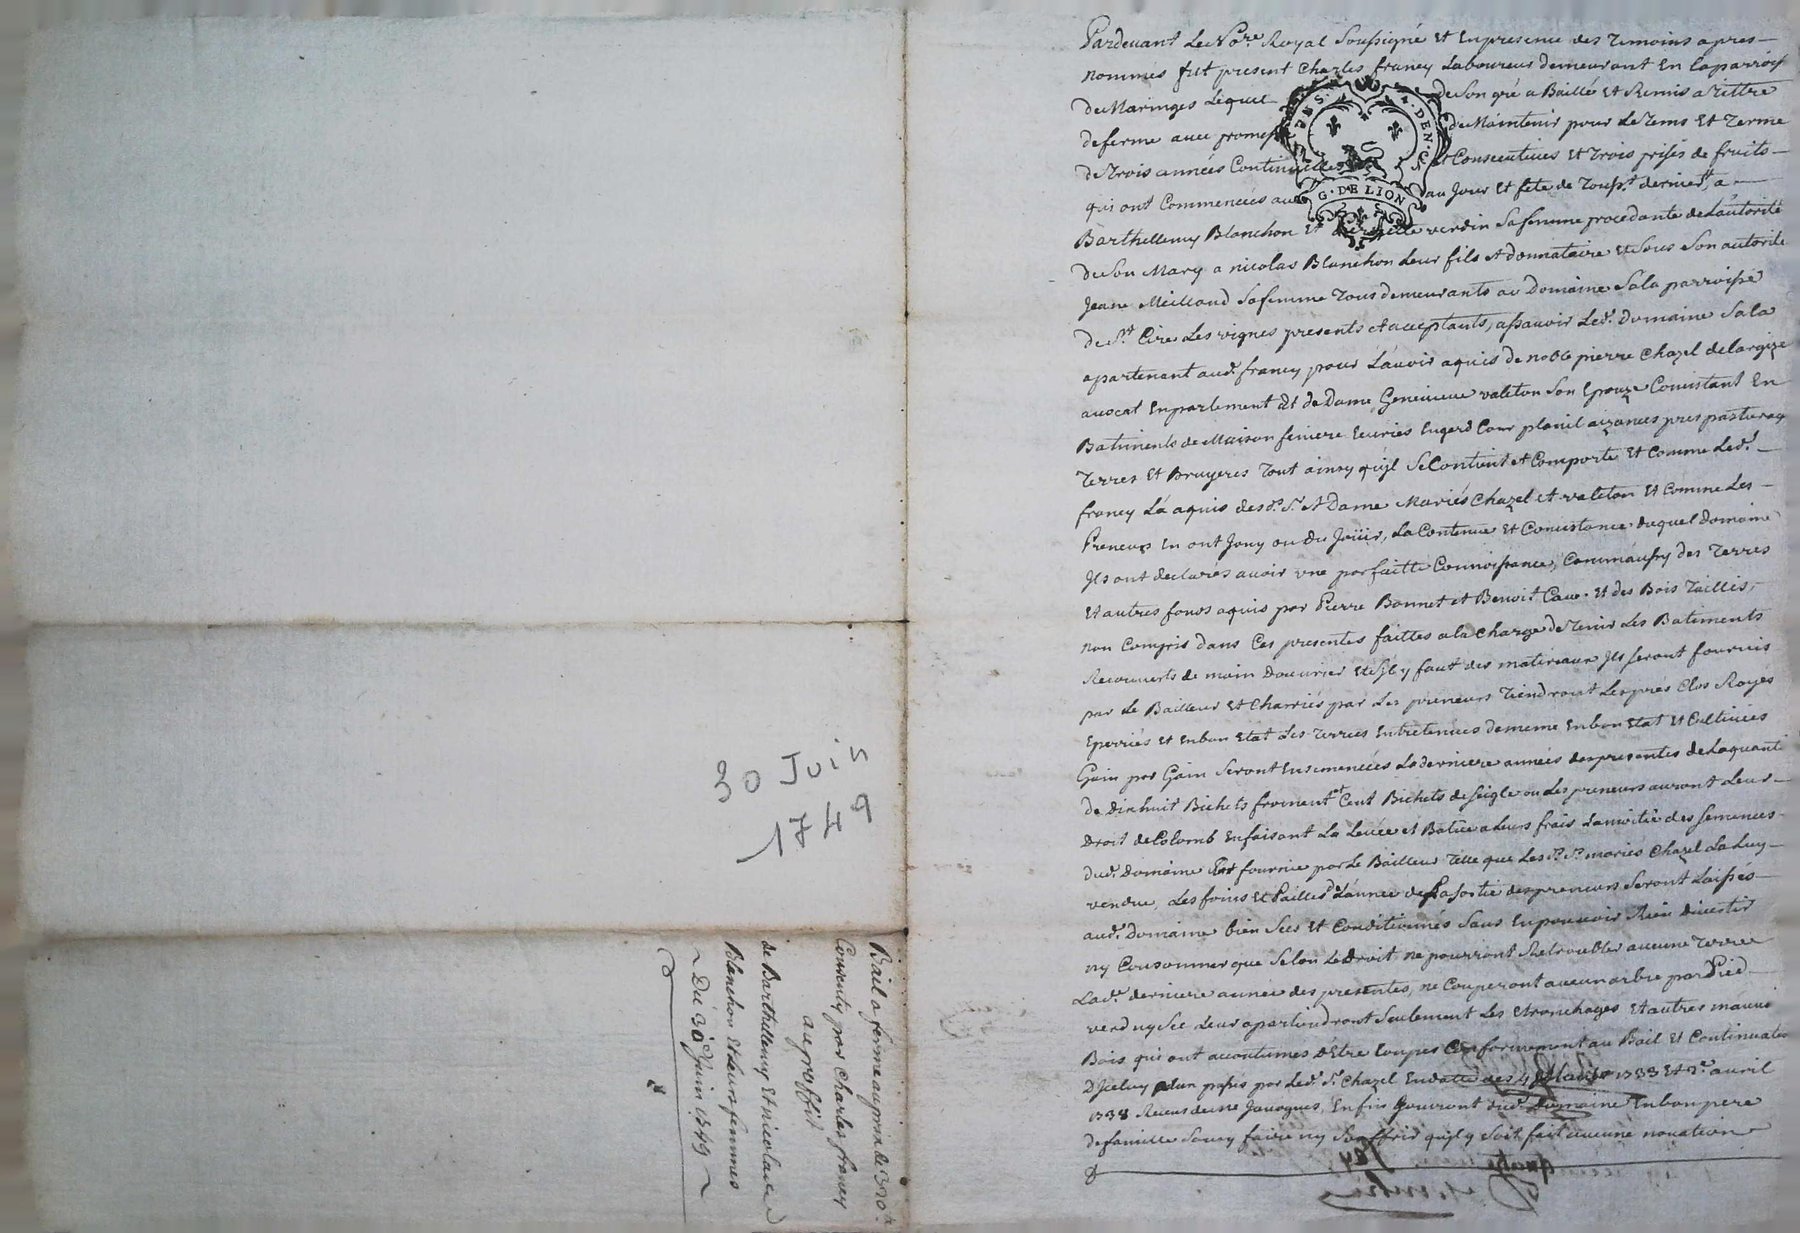 30 Juin
1749
Bail a ferme au prix de 320 lt
Consenty par Charles francy
au proffit
de Barthellemy Et nicolas
Blanchon Et Leurs femmes
Du 30 Juin 1749
Pardevant Le No.re Royal Soussigné Et En presence des Temoins apres
nommés fut present Charles francy Laboureur demeurant En la parroisse
de Maringes Lequel de Son gré a Baillé Et Remis a Tittre
de ferme avec promesse de Maintenir pour Le Tems Et Terme
de Trois années Continuelles Et Consecutives Et Trois prises de fruits
qui ont Commencées au Jour Et fete de Touss.t dernier, a
Barthellemy Blanchon Et verdin Sa femme procedante de L'autorité
de Son Mary a nicolas Blanchon Leur fils Et donnataire Et Sous Son autorité
Jeane Meilland Sa femme Tous demeurants au Domaine Sala parroisse
de St. Cire Les vignes presents et acceptants, assavoir Led. Domaine Sala
apartenant aud. francy pour L'avoir aquis de noble pierre Chazel delargize
avocat En parlement Et de Dame Genevieve valeton Son Epouze Consistant En
Batiments de Maison feniere Ecuries Cour plait aizances pres pasturage
Terres Et Bruyeres Tout ainsy qu'il Se Contient et Comporte Et Comme Led.
francy L'a aquis desd. Sr. Et Dame Mariés Chazel et valeton Et Comme Les
Preneurs En ont Jouy ou du Joüir, La Contenue Et Consistance duquel domaine
Ils ont declarés avoir une parfaitte Connoissance, Comm'aussy des Terres
Et autres fonds aquis par Pierre Bonnet et Benoit Et des Bois Taillis,
non Compris dans Ces presentes faittes a la Charge de Tenir Les Batiments
Recouverts de main Douvrier Et s'il y faut des materiaux Ils Seront fournis
par Le Bailleur Et Charriés par Les preneurs Tiendront Les prés Clos Rayés
Eperriés Et En bon Etat Les Terres Entretenues de meme En bon Etat Et Cultivées
Gain par Gain Seront Ensemencées La derniere année des presentes de La quantité
de dix huit Bichets froment et Cent Bichets de Seigle ou Les preneurs auront Leur
Droit de Colomb En faisant La Levée et Batüe a Leurs frais La moitié des Semences
dud. Domaine Est fournie par Le Bailleur Telle que Les Sr. mariés Chazel La Luy
vendue, Les foins Et Pailles de L'année de La Sortie des preneurs Seront Laissés
aud. Domaine bien Secs Et Conditionnés Sans En pouvoir Rien divertir
ny Consommer que Selon Le Droit ne pourront Retroubler aucune Terre
Lad. derniere année des presentes, ne Couperont aucun arbre par Pied
verd ny Sec Leur apartiendront Seulement Les Etronchages Et autres mauvais
Bois qui ont accoutumés d'Etre Coupés Conformement au Bail Et Continuation
D'Iceluy passés par Led. Sr. Chazel En datte des 1733 Et avril
1738 Recus de me Javogues, Enfin Jouiront dud. Domaine En bon pere
de famille Sans y faire ny Souffrir qu'il y Soit fait aucune novation
DES DEN
G. DE LION